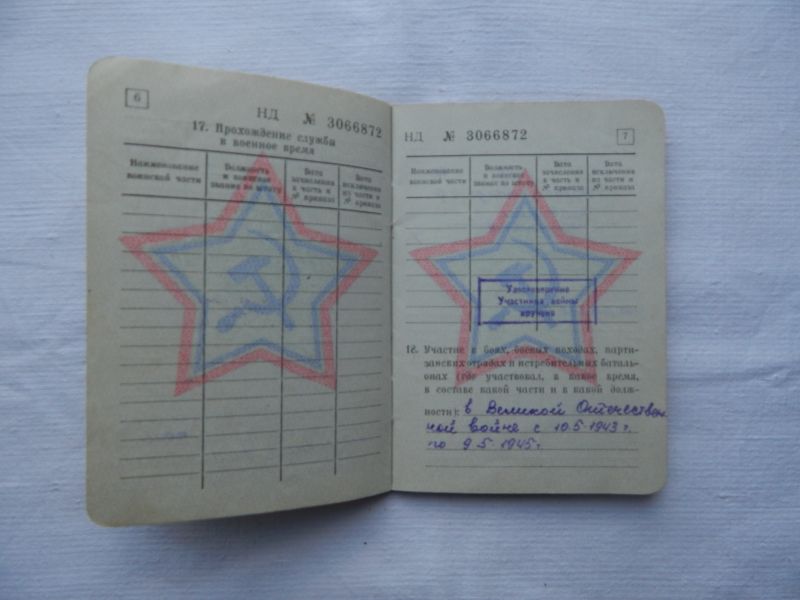 6
НД № 3066872
17. Прохождение службы
в военное время
Наименование
воинской части
Должность
и воинское
звание по штату
Дата
зачисления
в часть и
№ приказа
Дата
исключения
из части и
№ приказа
НД № 3066872
7
Наименование
воинской части
Должность
и воинское
звание по штату
Дата
зачисления
в часть и
№ приказа
Дата
исключения
из части и
№ приказа
Удостоверение
Участника войны
вручено
18. Участие в боях, боевых походах, парти-
занских отрядах и истребительных баталь-
онах (где участвовал, в какое время,
в составе какой части и в какой долж-
ности): в Великой Отечествен
ной войне с 10.5.1943 г.
по 9.5.1945 г.